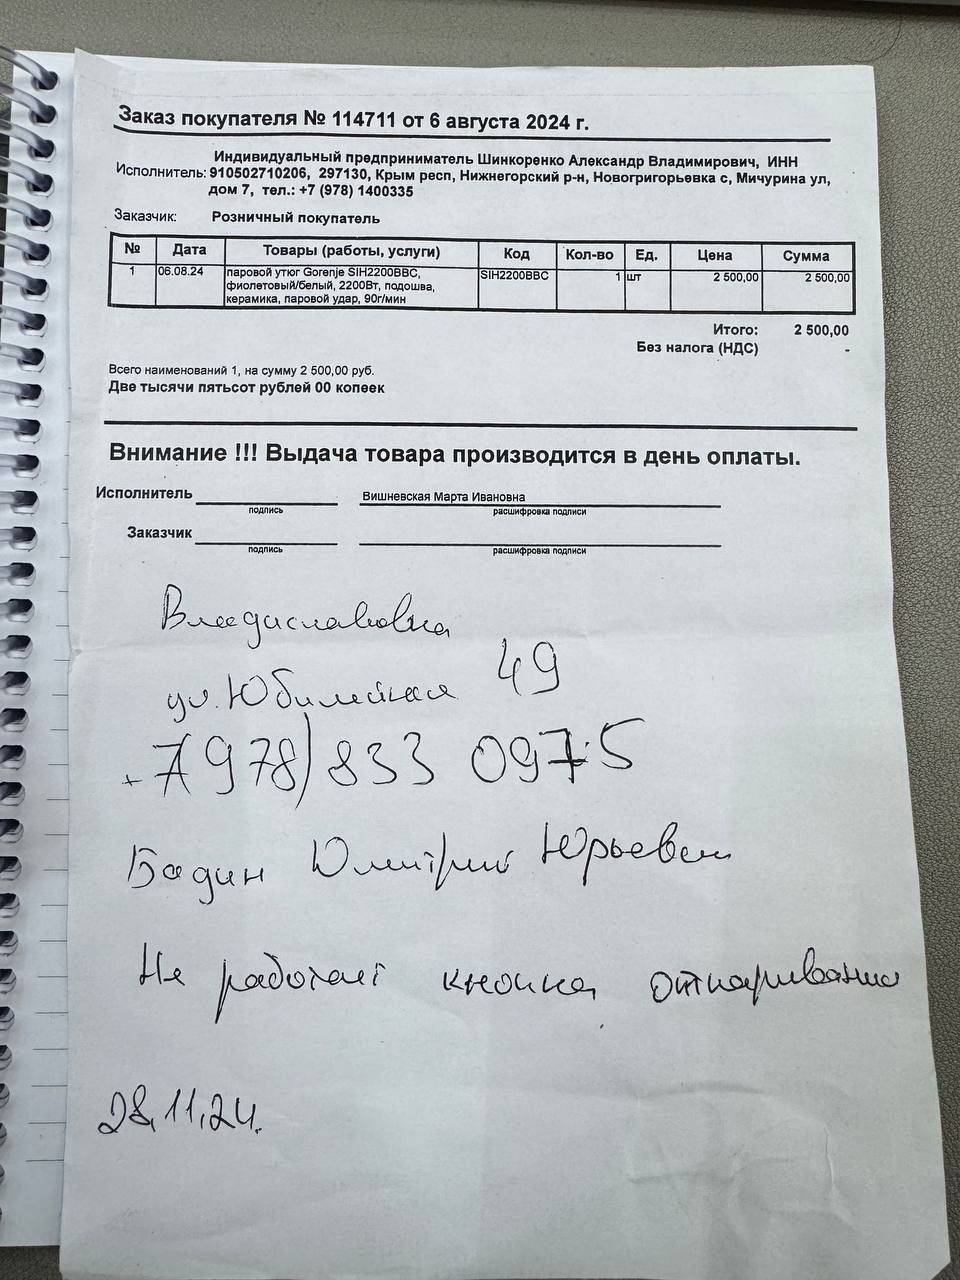 Заказ покупателя № 114711 от 6 августа 2024 г.
Исполнитель: Индивидуальный предприниматель Шинкоренко Александр Владимирович, ИНН
910502710206, 297130, Крым респ, Нижнегорский р-н, Новогригорьевка с, Мичурина ул,
дом 7, тел.: +7 (978) 1400335
Заказчик: Розничный покупатель
№ Дата Товары (работы, услуги) Код Кол-во Ед. Цена Сумма
1 06.08.24 паровой утюг Gorenje SIH2200BBC, SIH2200BBC 1 шт 2 500,00 2 500,00
фиолетовый/белый, 2200Вт, подошва,
керамика, паровой удар, 90г/мин
Итого: 2 500,00
Без налога (НДС) -
Всего наименований 1, на сумму 2 500,00 руб.
Две тысячи пятьсот рублей 00 копеек
Внимание !!! Выдача товара производится в день оплаты.
Исполнитель Вишневская Марта Ивановна
подпись расшифровка подписи
Заказчик
подпись расшифровка подписи
Владиславовна
ул. Юбилейная 49
+7(978)833 0975
Бадин Дмитрий Юрьевич
Не работает кнопка отпаривания
28.11.24.